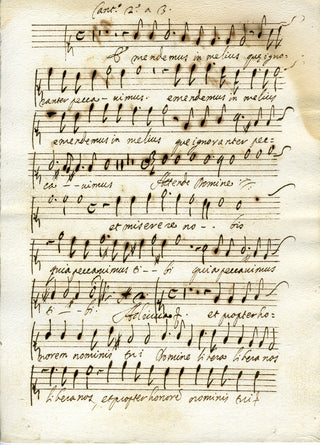 Cant.º 2.º a 3.
Emendemus in melius que igno-
ranter pecca - uimus. emendemus in melius
emendemus in melius que ignoranter pec-
ca - - uimus Attende Domine
et miserere no - - bis
quia peccauimus ti - - bi quia peccauimus
ti - - bi. Adiuua et propter ho-
norem nominis tui Domine libera libera nos
libera nos et propter honorẽ nominis tui